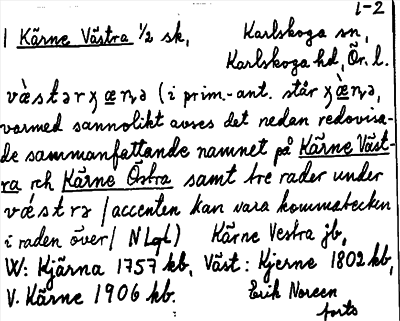 1-2
1 Kärne Västra 1/2 sk, Karlskoga sn,
Karlskoga hd, Ör. l.
væ̀stərχæṇə (i prim.-ant. står χæ̀ṇə,
varmed sannolikt avses det nedan redovisa-
de sammanfattande namnet på Kärne Väst-
ra och Kärne Östra samt tre rader under
vǽstrə / accenten kan vara kommatecken
i raden över / NLgl) Kärne Vestra jb,
W: Kjärna 1757 kb, Väst: Kjerne 1802 kb,
V. Kärne 1906 kb. Erik Noreen
forts